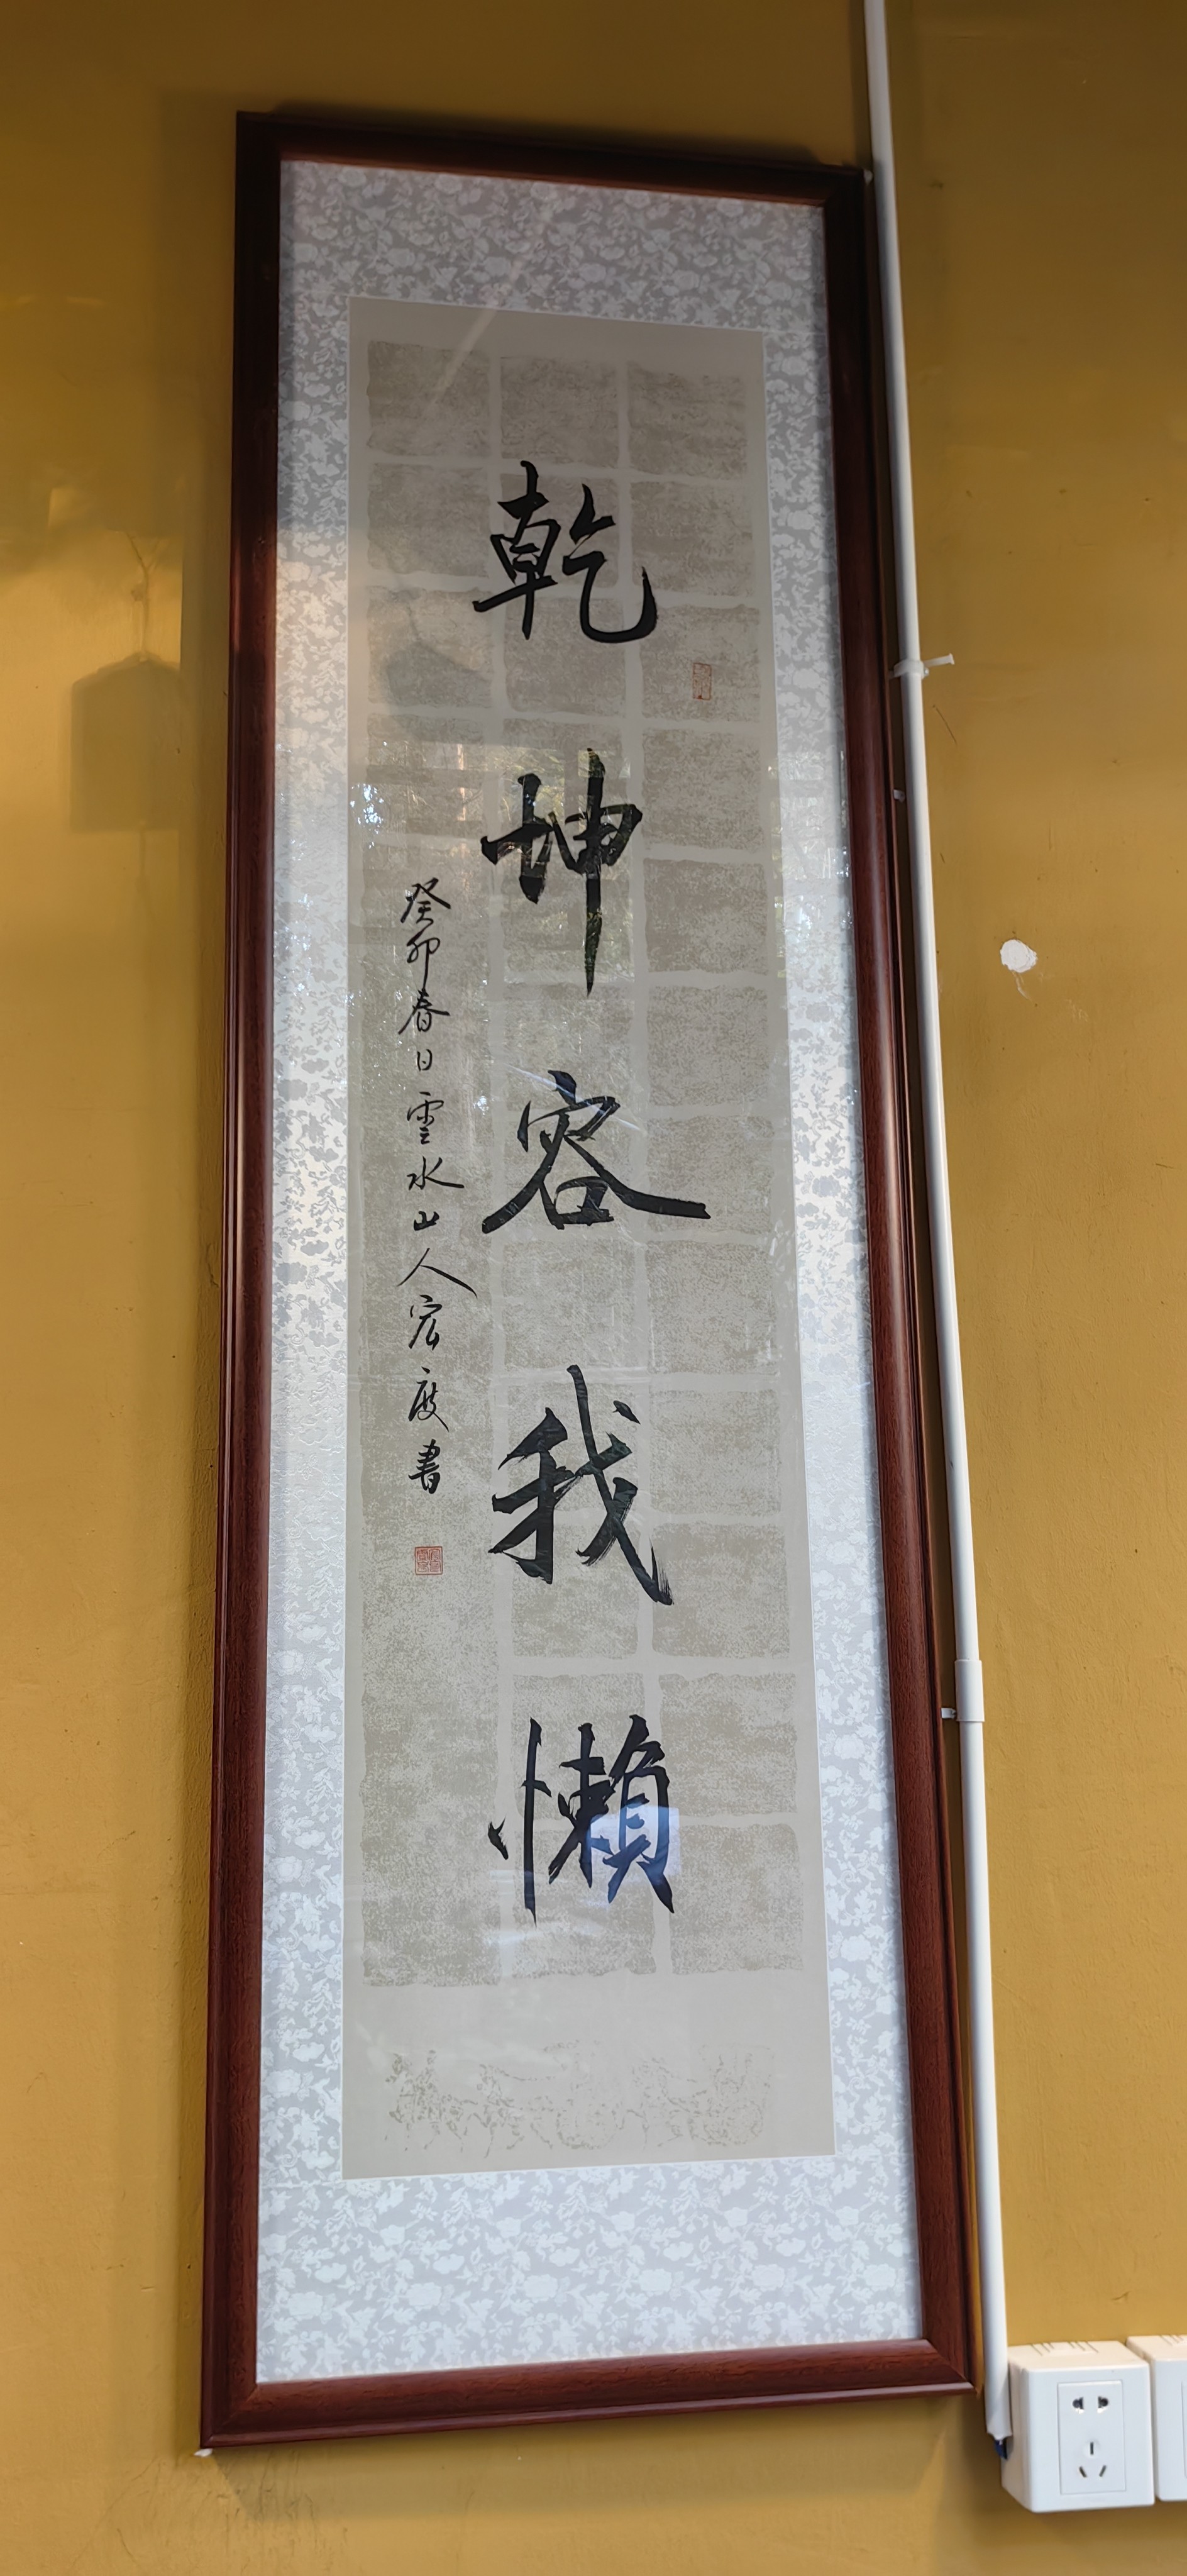 乾坤容我懶
癸卯春日雲水山人宏度書